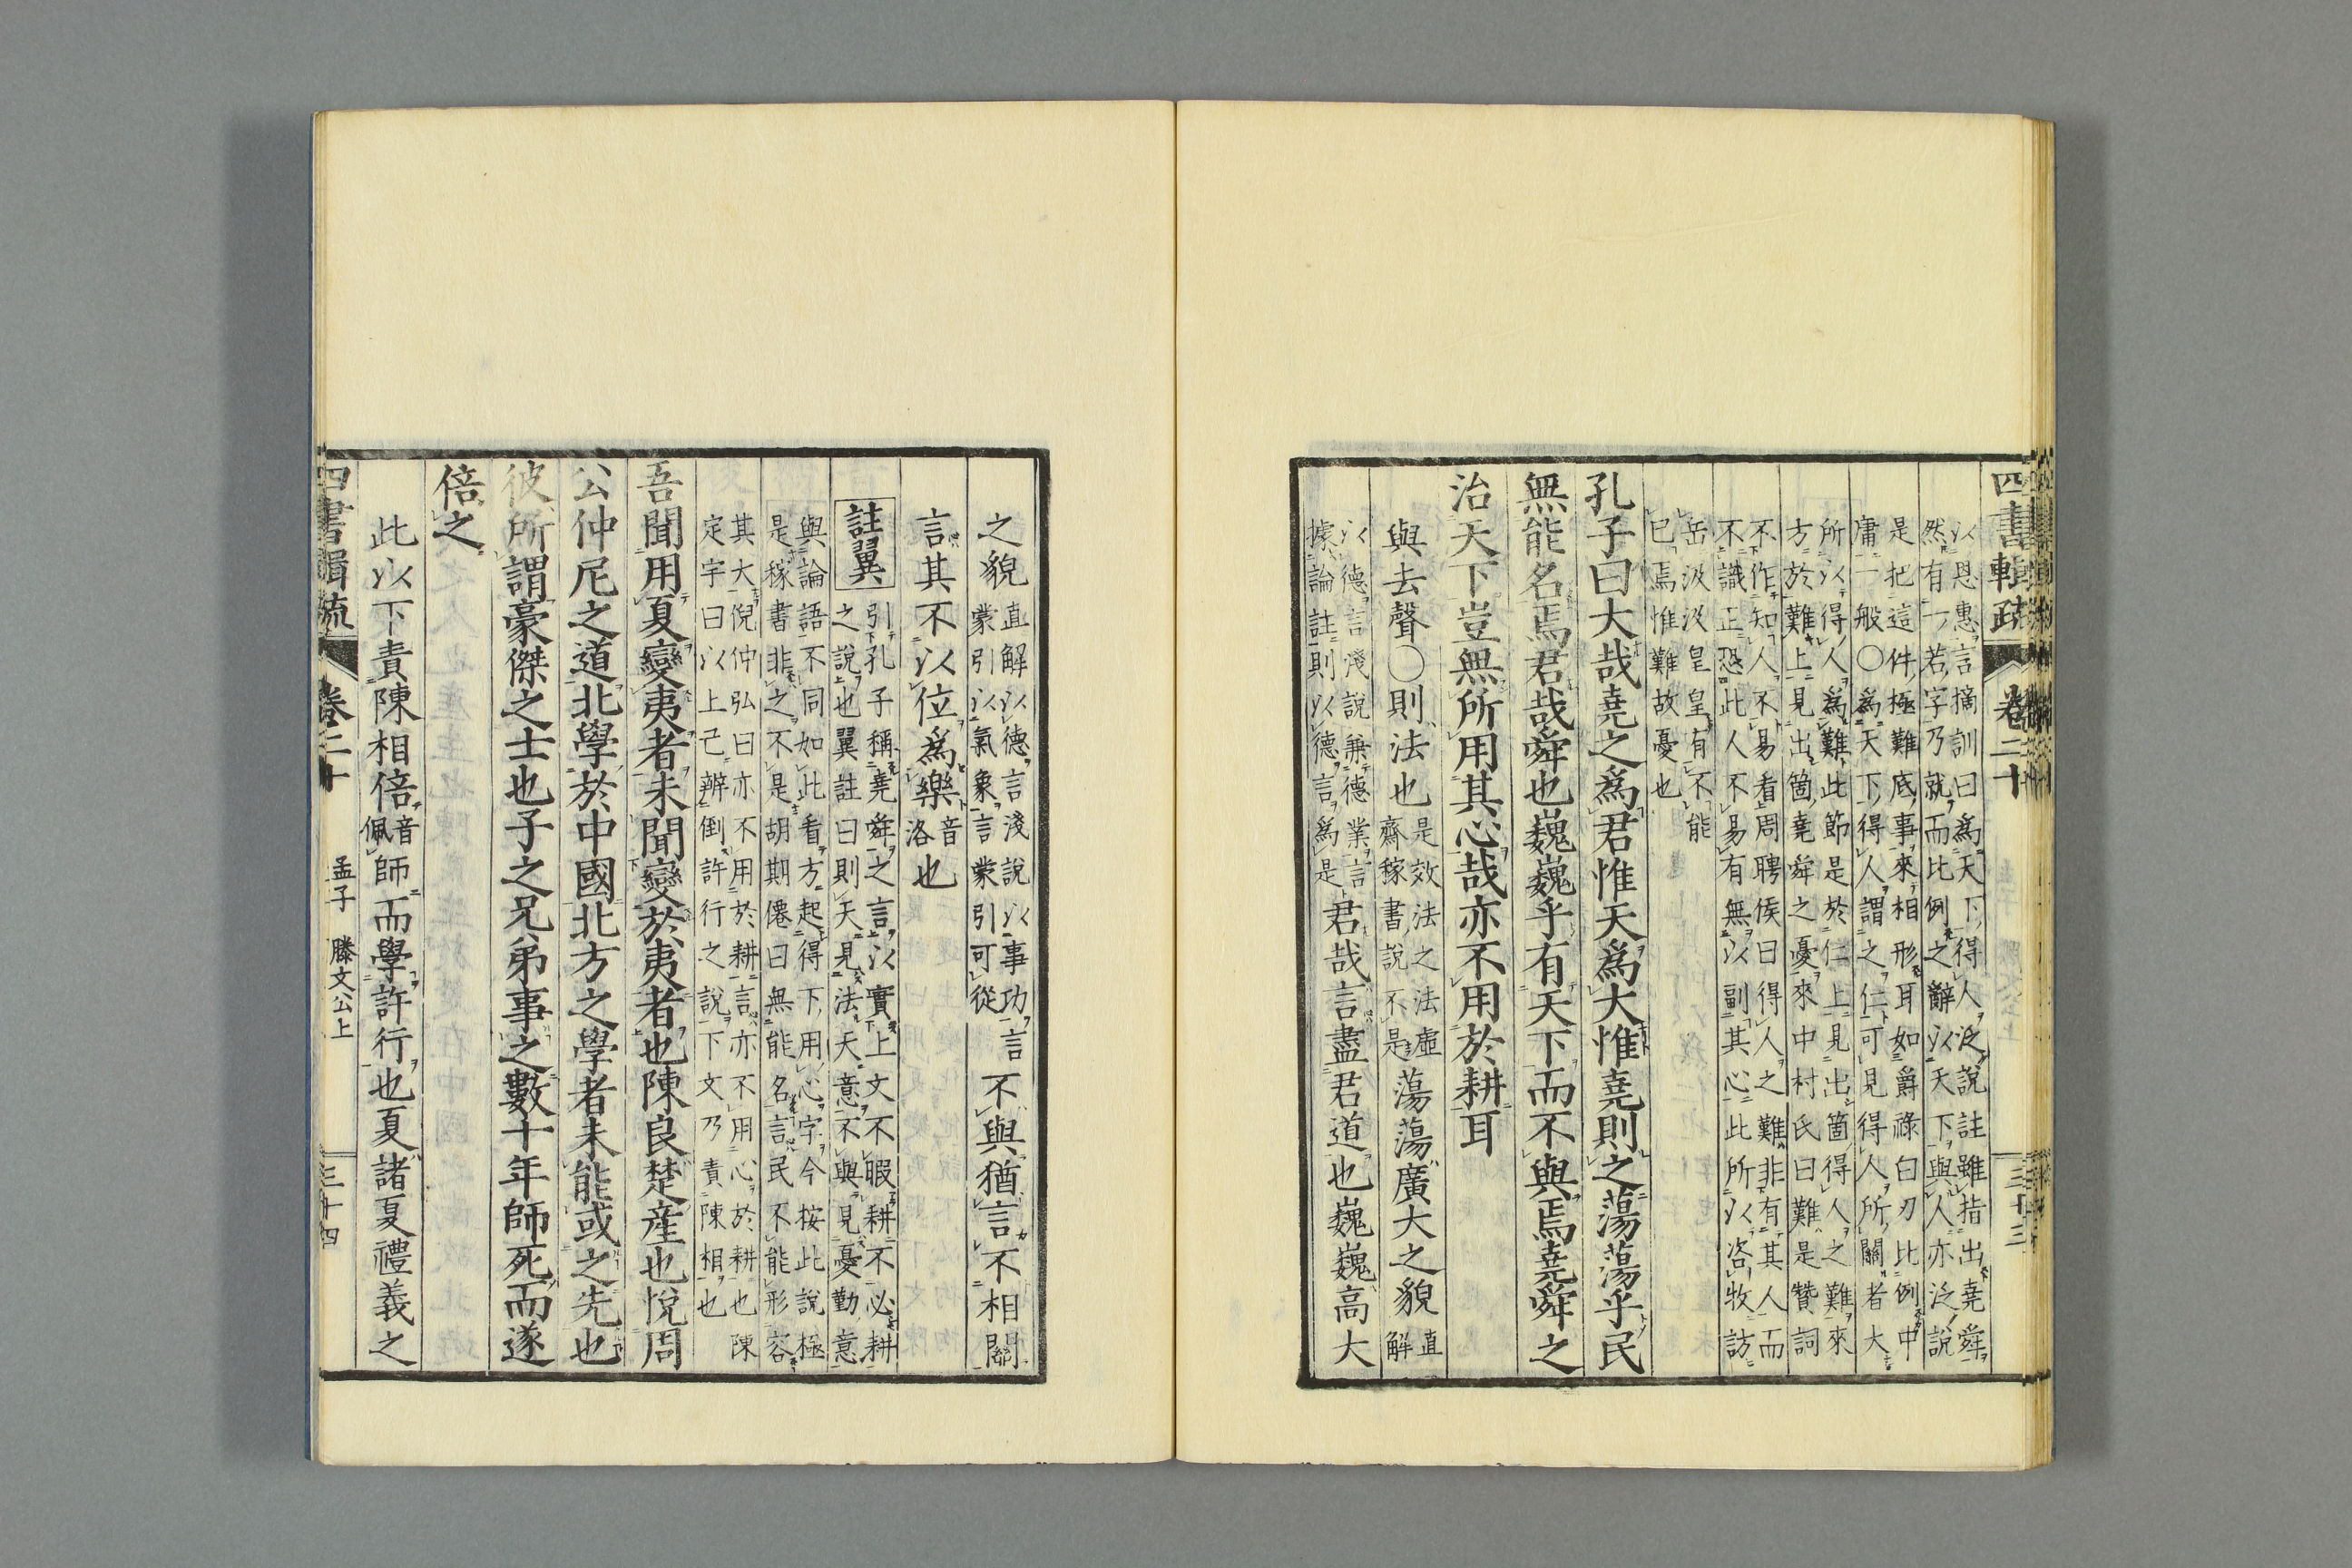 四書輯疏 卷二十 三十三
以恩惠言摘訓曰爲天下得人泛說註雖指出堯舜
然有一若字乃就而比例之辭以天下與人亦泛說
是把這件極難底事來相形耳如爵祿白刃比例中
庸一般〇爲天下得人謂之仁可見得人所關者大
所以得人爲難此節是於仁上見出箇得人之難來
方於難上見出箇堯舜之憂來中村氏曰難是贊詞
不作知人不易看周聘侯曰得人之難非有其人而
不識正恐此人不易有無以副其心此所以咨牧訪
岳汲汲皇皇有不能
已焉惟難故憂也
孔子曰大哉堯之爲君惟天爲大惟堯則之蕩蕩乎民
無能名焉君哉舜也巍巍乎有天下而不與焉堯舜之
治天下豈無所用其心哉亦不用於耕耳
與去聲〇則法也
是效法之法虛
齋稼書說不是
蕩蕩廣大之貌
直
解
以德言淺說兼德業言
據論註則以德言爲是
君哉言盡君道也巍巍高大
之貌
直解以德言淺說以事功
蒙引以氣象言蒙引可從
言不與猶言不相關
言其不以位爲樂
音
洛
也
註翼
引孔子稱堯舜之言以實上文不暇耕不必耕
之說也翼註曰則天見法天意不與見憂勤意
與論語不同如此看方起得下用心字今按此說極
是稼書非之不是胡期僊曰無能名言民不能形容
其大倪仲弘曰亦不用於耕言亦不用心於耕也陳
定宇曰以上己辨倒許行之說下文乃責陳相也
吾聞用夏變夷者未聞變於夷者也陳良楚產也悅周
公仲尼之道北學於中國北方之學者未能或之先也
彼所謂豪傑之士也子之兄弟事之數十年師死而遂
倍之
此以下責陳相倍
音
佩
師而學許行也夏諸夏禮義之
四書輯疏 卷二十 孟子 滕文公上 三十四